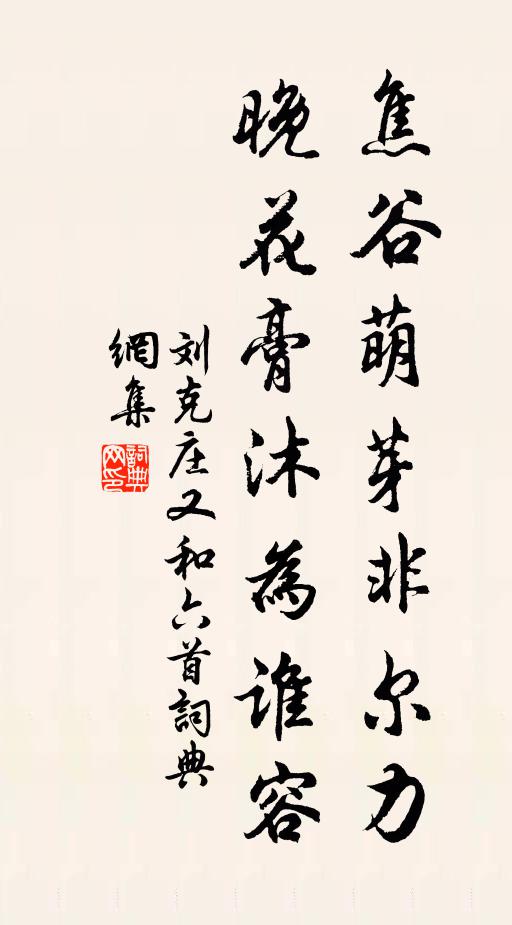 焦谷萌芽非尔力
晚花膏沐為谁容
刘克庄又和六首詞典
網集
詞典
网印